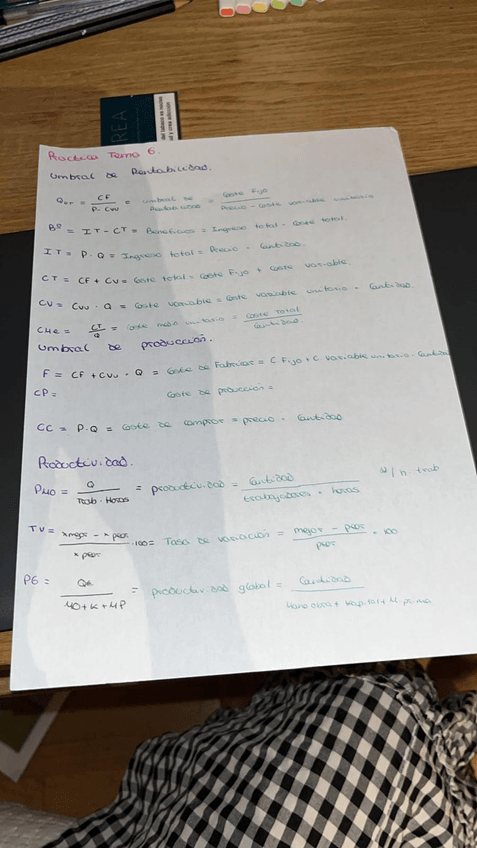 REA
del tabaco es nocivo
Practica Tema 6.
Umbral de Rentabilidad.
QUR = CF / P - CVu = Umbral de Rentabilidad = Coste Fijo / Precio - Coste variable unitario
Bº = IT - CT = Beneficios = Ingreso total - Coste total.
IT = P · Q = Ingreso total = Precio · Cantidad.
CT = CF + CV = Coste total = Coste Fijo + Coste variable.
CV = CVu · Q = Coste variable = Coste variable unitario · Cantidad.
CMe = CT / Q = Coste medio unitario = Coste Total / Cantidad.
Umbral de producción.
F = CF + CVu · Q = Coste de Fabricar = C. Fijo + C. variable unitario · Cantidad
CP = Coste de producción =
CC = P · Q = Coste de comprar = precio · Cantidad
Productividad.
PMO = Q / Trab · Horas = productividad = Cantidad / trabajadores · horas n trab
TV = x mejor - x peor / x peor · 100 = Tasa de variación = mejor - peor / peor · 100
PG = / MO + K + MP = productividad global = Cantidad / Mano obra + Kapital + M. prima